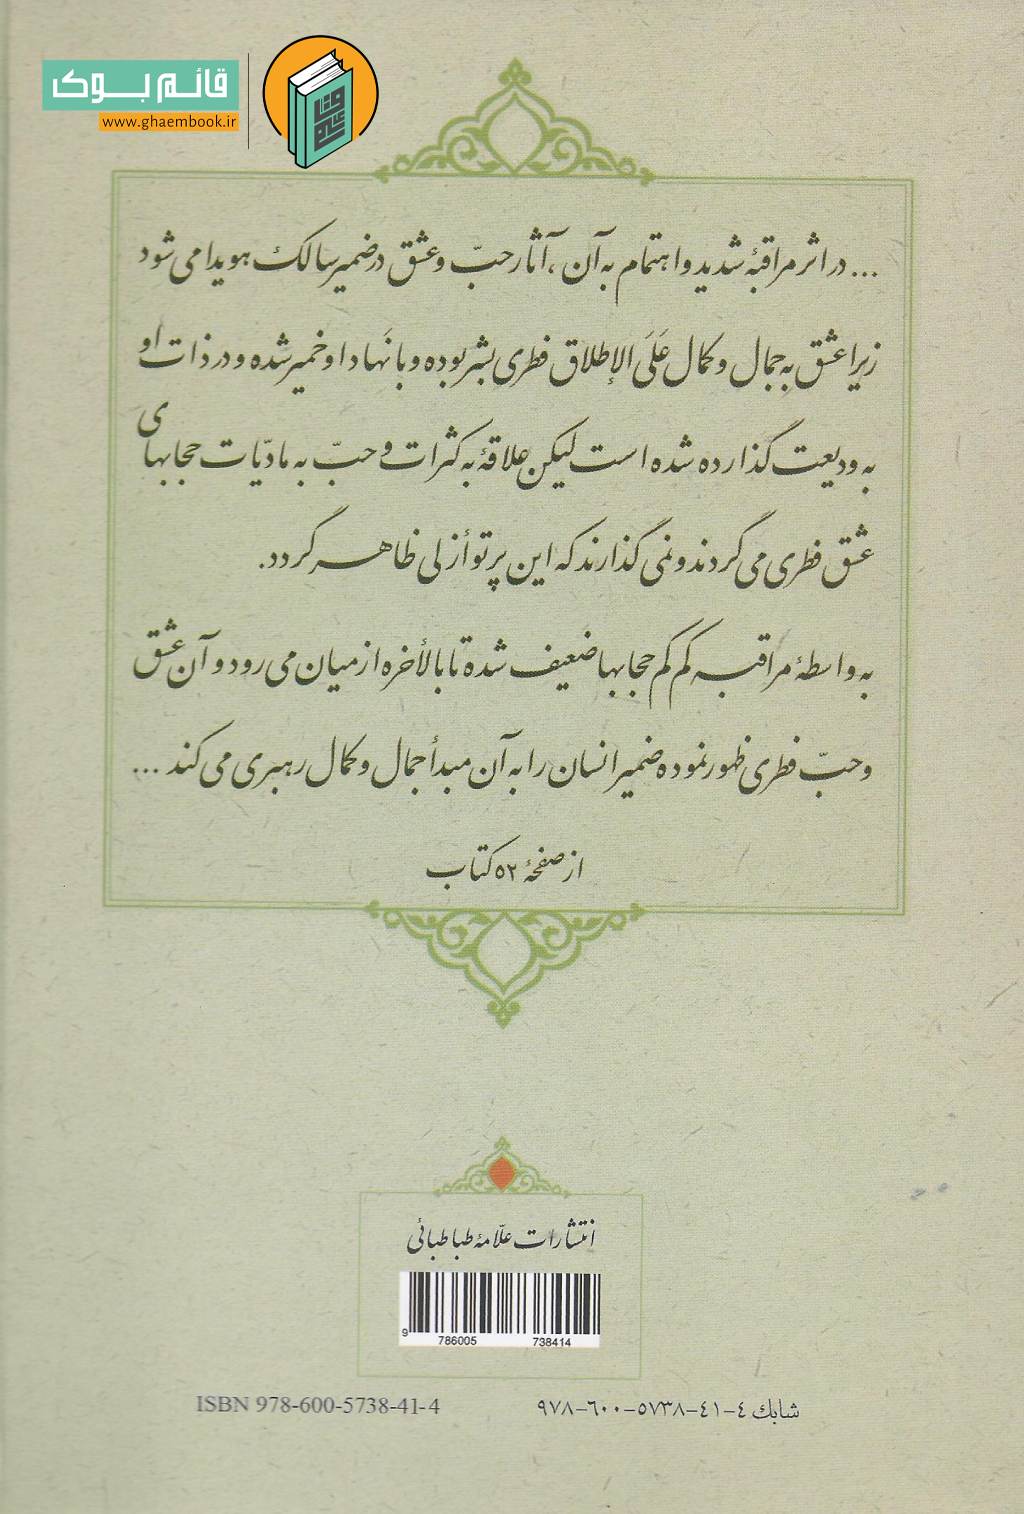 قائم بوک
www.ghaembook.ir
... در اثر مراقبهٔ شدید و اهتمام به آن، آثار حبّ و عشق در ضمیر سالک هویدا می‌شود
زیرا عشق به جمال و کمال عَلَی الإطلاق فطری بشر بوده و با نَهاد او خمیر شده و در ذات او
به ودیعت گذارده شده است لیکن علاقهٔ به کثرات و حبّ به مادّیات حجابهای
عشق فطری می‌گردند و نمی‌گذارند که این پرتو أزلی ظاهر گردد.
به واسطهٔ مراقبه کم کم حجابها ضعیف شده تا بالأخره از میان می‌رود و آن عشق
و حبّ فطری ظهور نموده ضمیر انسان را به آن مبدأ جمال و کمال رهبری می‌کند ...
از صفحهٔ ۵۲ کتاب
انتشارات علّامهٔ طباطبائی
9 786005 738414
ISBN 978-600-5738-41-4
شابک ٤-٤١-٥٧٣٨-٦٠٠-٩٧٨